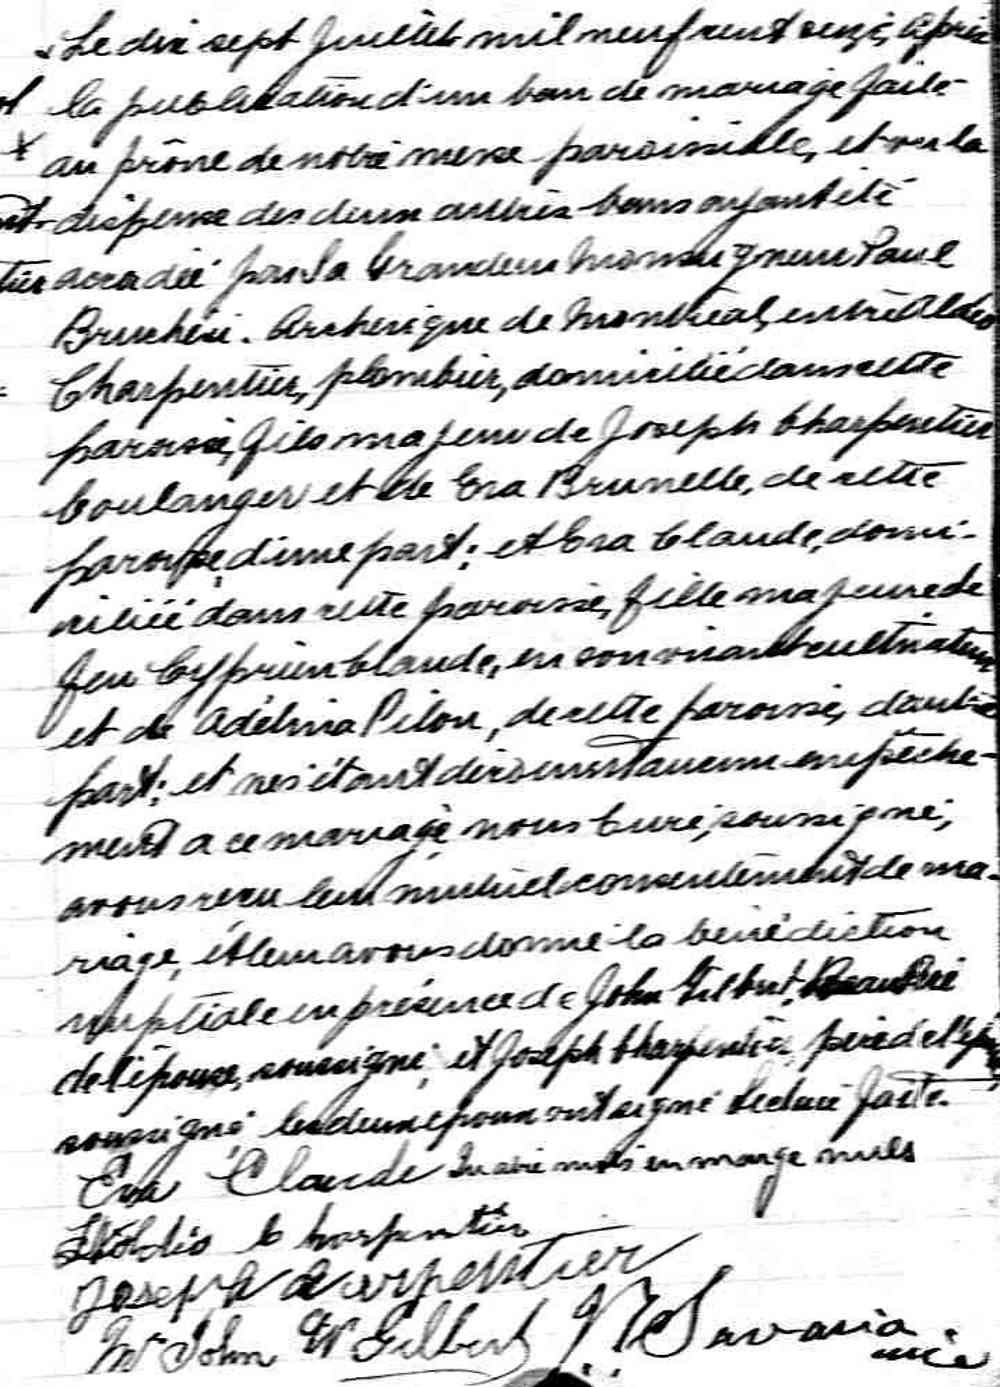 Le dix sept Juillet mil neuf cent seize, après
la publication d'un ban de mariage faite
au prône de notre messe paroissiale, et vu la
dispense des deux autres bans ayant été
accordée par Sa Grandeur Monseigneur Paul
Bruchési. Archevêque de Montréal, entre Aldéo
Charpentier, plombier, domicilié dans cette
paroisse, fils majeur de Joseph Charpentier
boulanger et de Eva Brunelle, de cette
paroisse, d'une part; et Eva Claude, domi-
ciliée dans cette paroisse, fille majeure de
feu Cyprien Claude, en son vivant cultivateur
et de Adélina Pilon, de cette paroisse, d'autre
part; et ne s'étant découvert aucun empêche-
ment a ce mariage, nous Curé, soussigné,
avons reçu leur mutuel consentement de ma-
riage, et leur avons donné la bénédiction
nuptiale en présence de John Gilbert, Beau Père
de l'épouse, soussigné, et Joseph Charpentier père de l'époux
soussigné, les deux époux ont signé lecture faite.
Eva Claude Quatre mots en marge nuls
Aldéo Charpentier
Joseph Charpentier
Mr John W Gilbert Savaria
curé